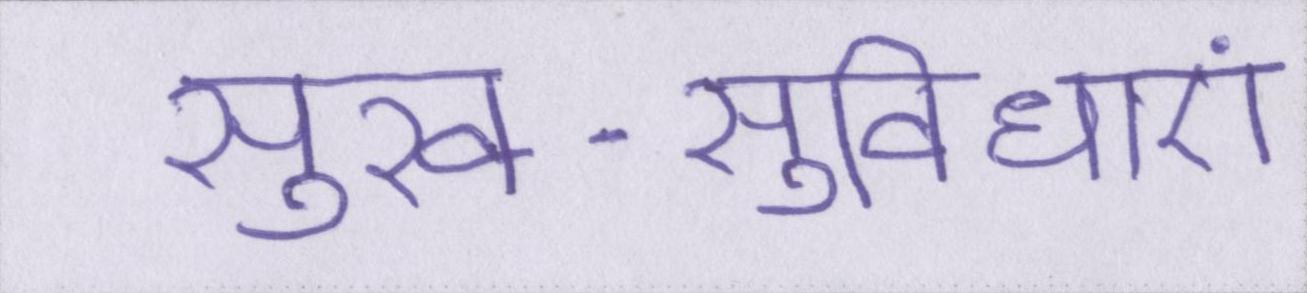 सुख-सुविधाएं